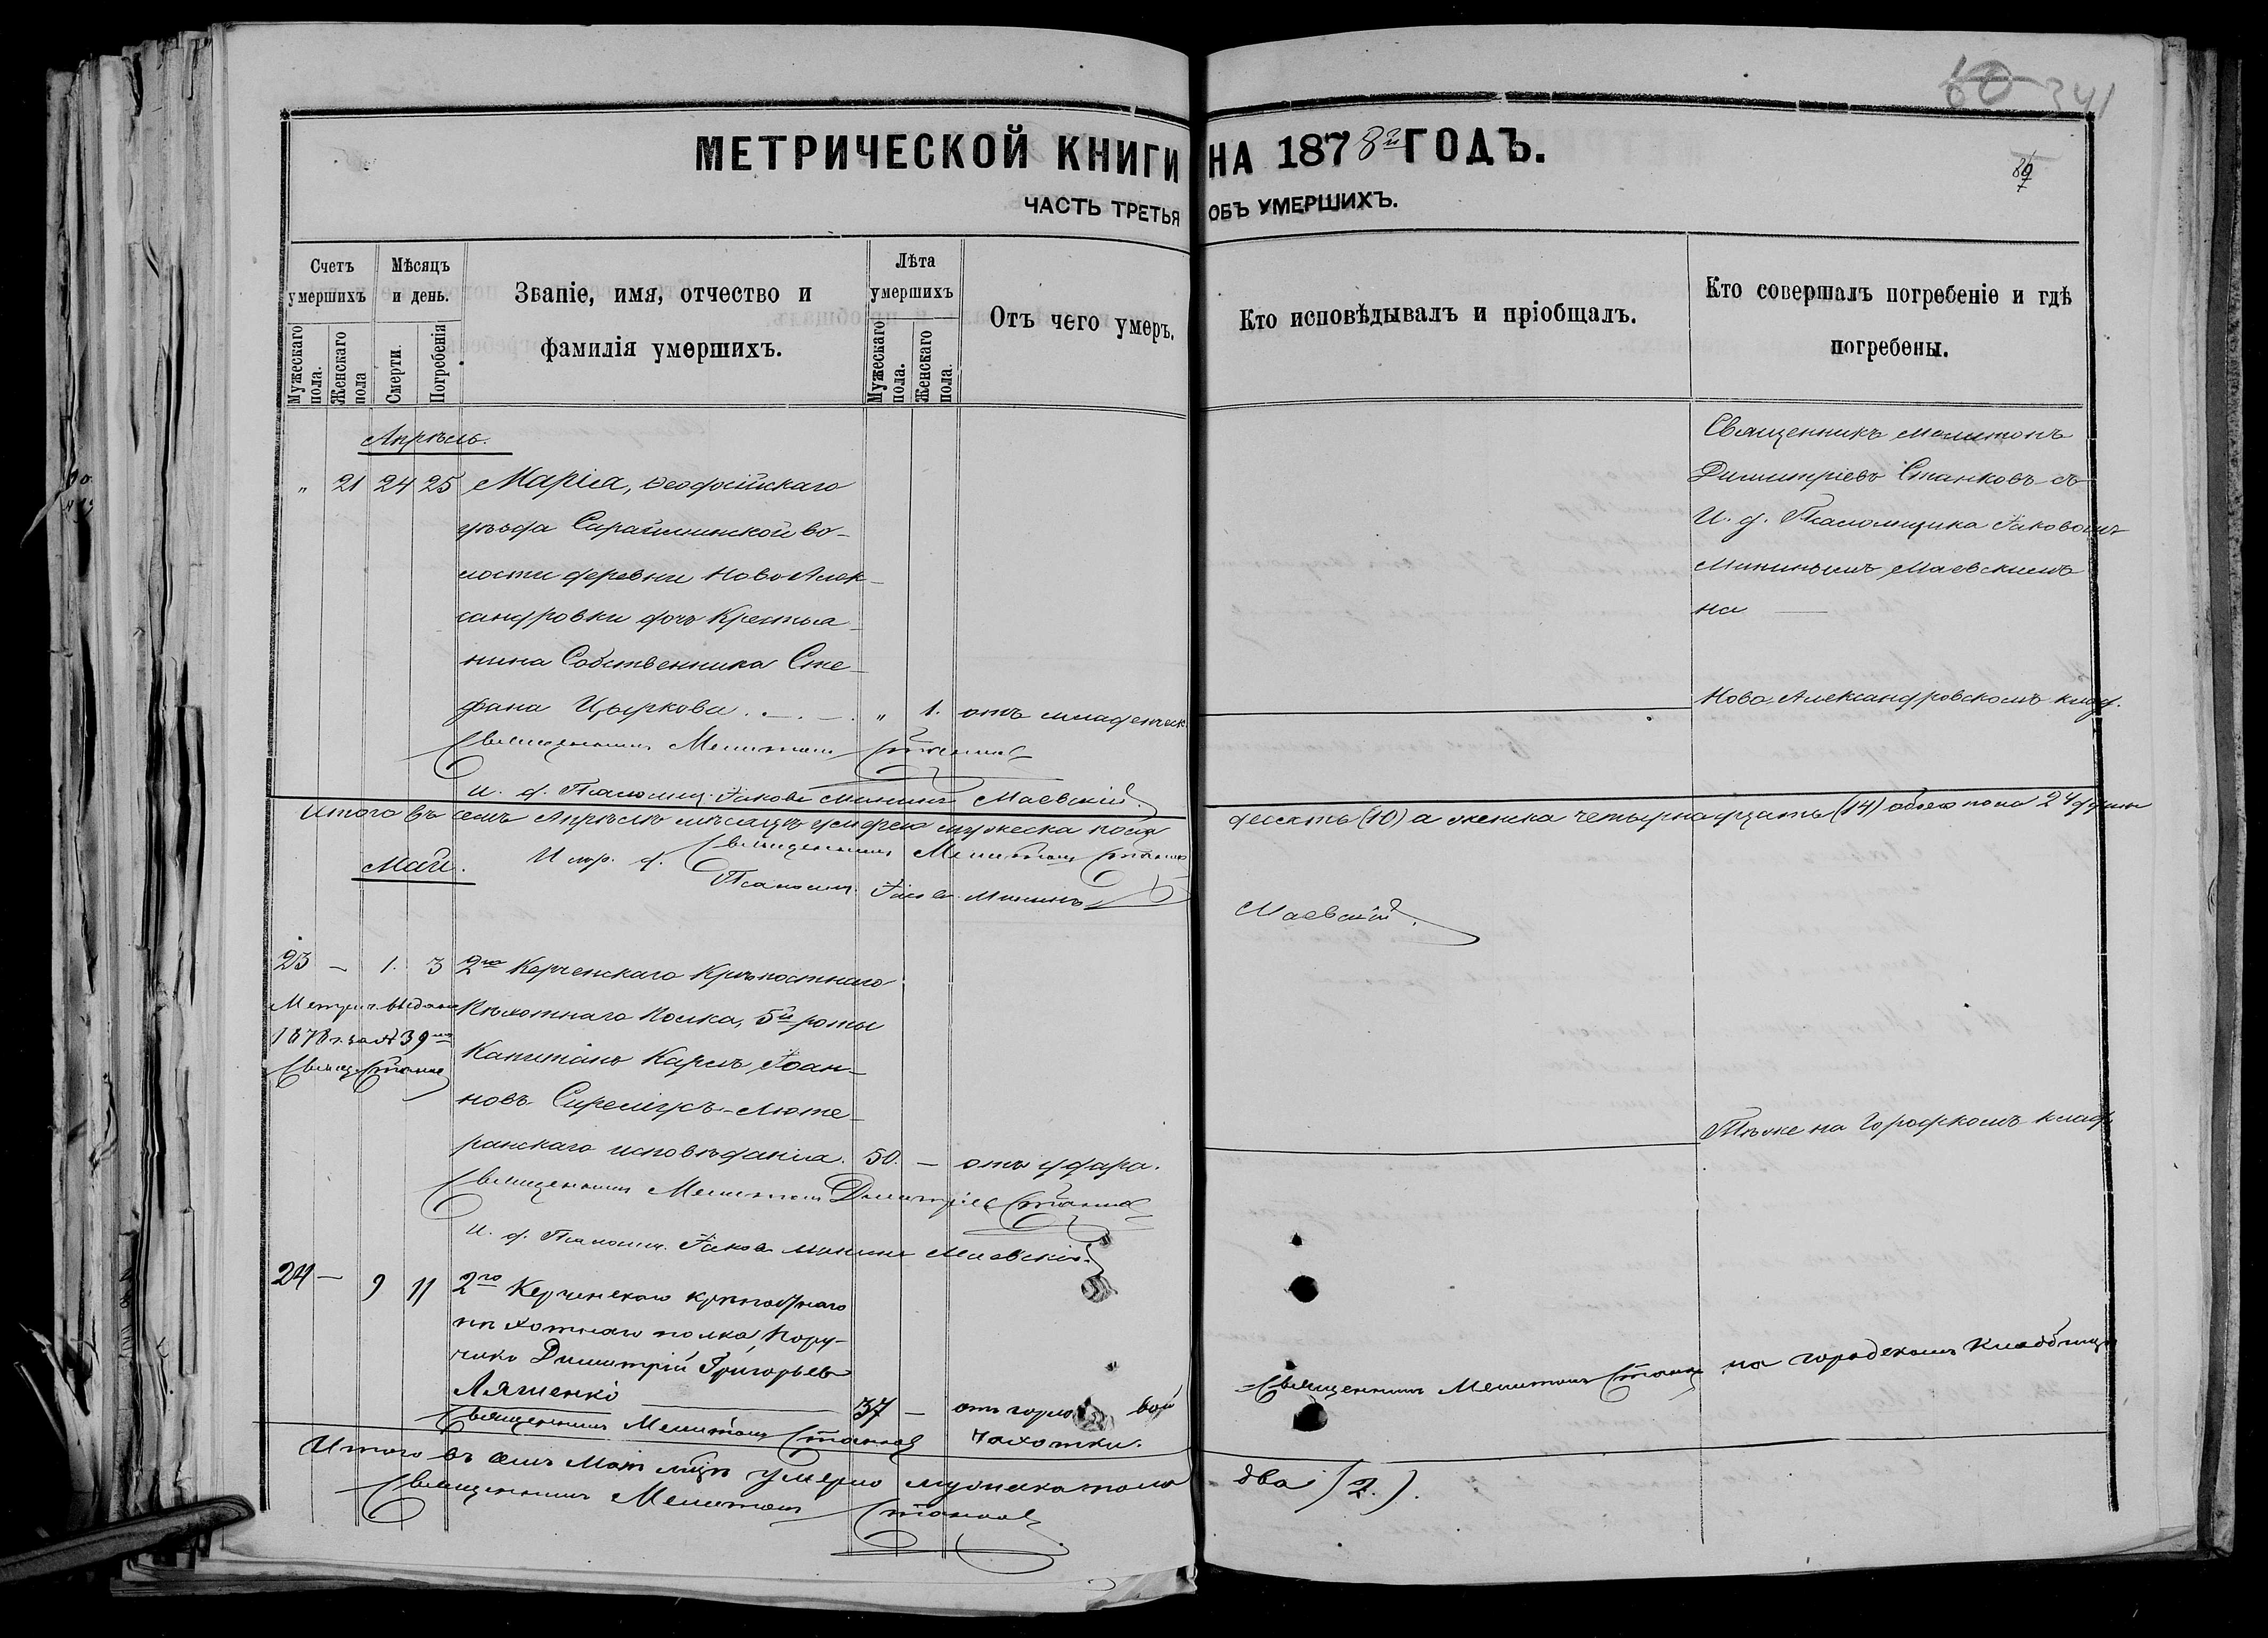 60 341
МЕТРИЧЕСКОЙ КНИГИ НА 1878й ГОДЪ.
89
ЧАСТЬ ТРЕТЬЯ ОБЪ УМЕРШИХЪ.
Счетъ умершихъ
Мужескаго пола.
Женскаго пола
Мѣсяцъ и день.
Смерти.
Погребенія
Званіе, имя, отчество и фамилія умершихъ.
Лѣта умершихъ
Мужескаго пола.
Женскаго пола.
Отъ чего умеръ.
Кто исповѣдывалъ и пріобщалъ.
Кто совершалъ погребеніе и гдѣ погребены.
Апрѣль.
" 21 24 25 Марія, Ѳеодосійскаго
уѣзда Сарайминской во-
лости деревни НовоАлек-
сандровки дочь Крестья-
нина Собственника Сте-
фана Цыркова " 1. отъ младенческ.
Священникъ Мелитонъ
Димитріевъ Станковъ съ
И. д. Псаломщика Іаковомъ
Мининымъ Маевскимъ
на
Ново-Александровскомъ клад.
Священникъ Мелитонъ Станковъ
И. д. Псаломщ. Іаковъ Мининъ Маевскій.
Итого въ семъ Апрѣлѣ мѣсяцѣ умерло мужеска пола десять (10) а женска четырнадцать (14) обоего пола 24 души
Май.
Испр. д. Священникъ Мелитонъ Станковъ
Псаломщ. Іаковъ Мининъ Маевскій.
23 – 1. 3 2го Керченскаго Крѣпостнаго
Метрич. выдана Пѣхотнаго Полка, 5й роты
1878 г. за № 39мъ Капитанъ Карлъ Іоан-
Свящ. Станков
новъ Сирелiусъ-Люте-
ранскаго исповѣданія. 50. – отъ удара.
Тѣже на Городскомъ клад.
Священникъ Мелитонъ Димитріевъ Станковъ
И. д. Псаломщ. Іаковъ Мининъ Маевскій.
24 – 9 11 2го Керченскаго крѣпостнаго
пѣхотнаго полка Пору-
чикъ Димитрій Григорьевъ
Ляшенко 37 – отъ горловой
чахотки.
Священникъ Мелитонъ Станков на городскомъ кладбищѣ
Священникъ Мелитонъ Станковъ
Итого въ семъ Маѣ мѣсцѣ умерло мужеска пола два (2.).
Священникъ Мелитонъ Станковъ